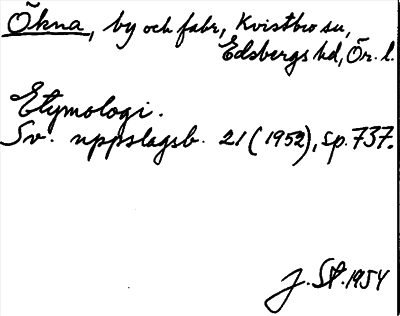 Ökna, by och fabr, Kvistbro su,
Edsbergs hd, Ör. l.
Etymologi.
Sv. uppslagsb. 21 (1952), sp. 737.
J. St. 1954